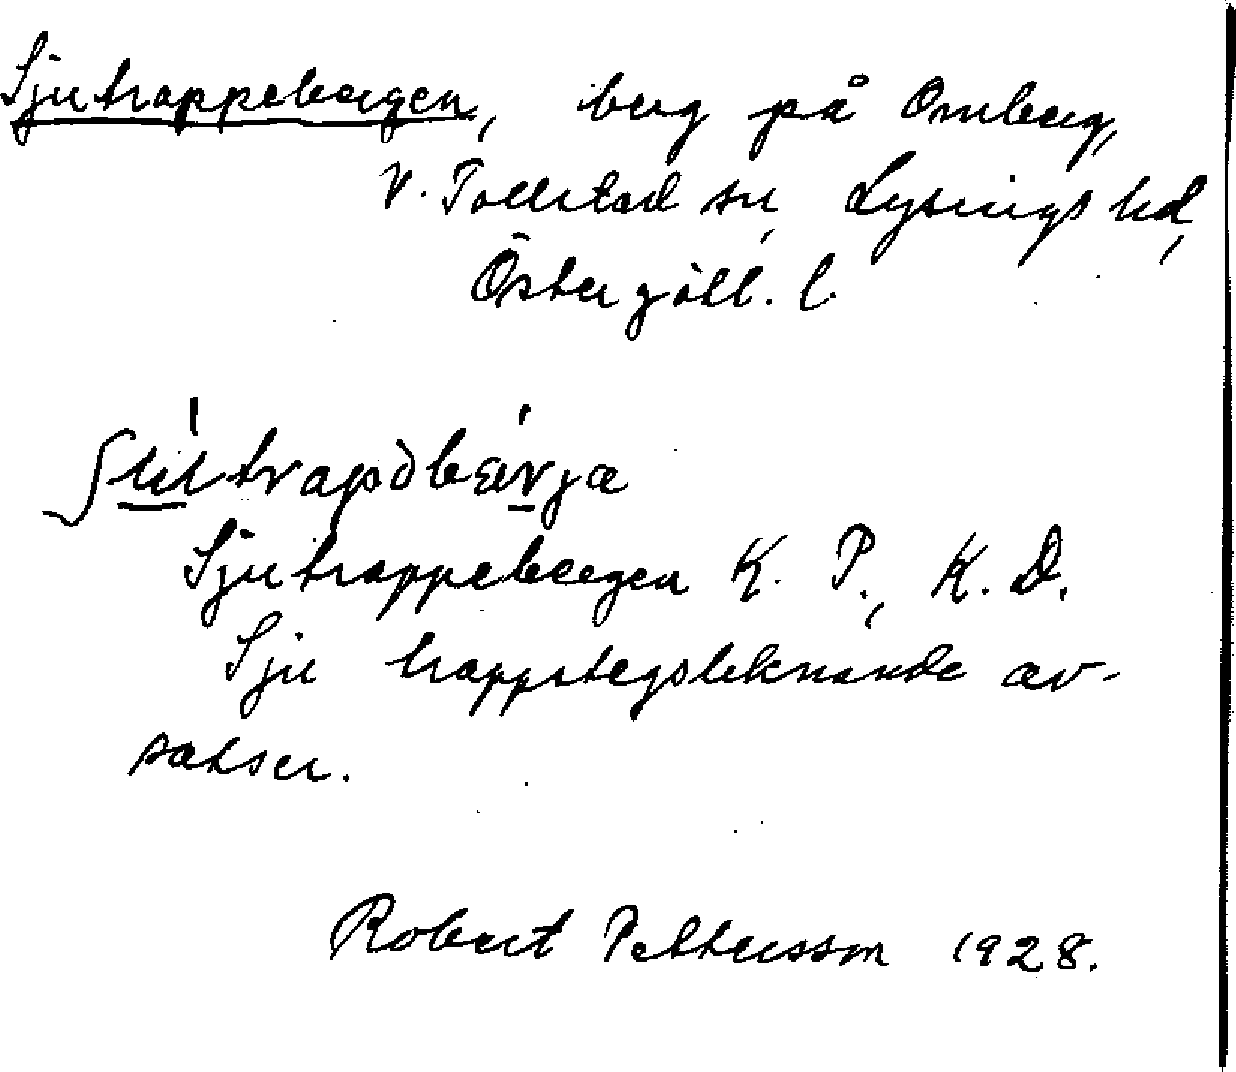 Sjutrappebergen, berg på Omberg,
V. Tollstad sn, Lysings hd,
Östergötl. l.
Sjutrappebergen K. P., K. D.
Sju trappstegsliknande av-
satser.
Robert Pettersson 1928.